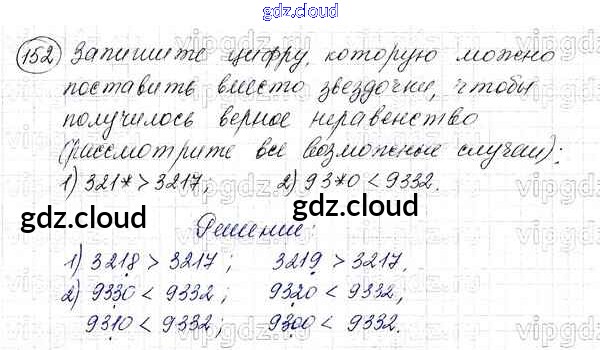 gdz.cloud
152 Запишите цифру, которую можно
поставить вместо звездочки, чтобы
получилось верное неравенство
(рассмотрите все возможные случаи):
1) 321* > 3217; 2) 93*0 < 9332.
gdz.cloud gdz.cloud
Решение:
1) 3218 > 3217; 3219 > 3217.
2) 9330 < 9332; 9320 < 9332;
9310 < 9332; 9300 < 9332.